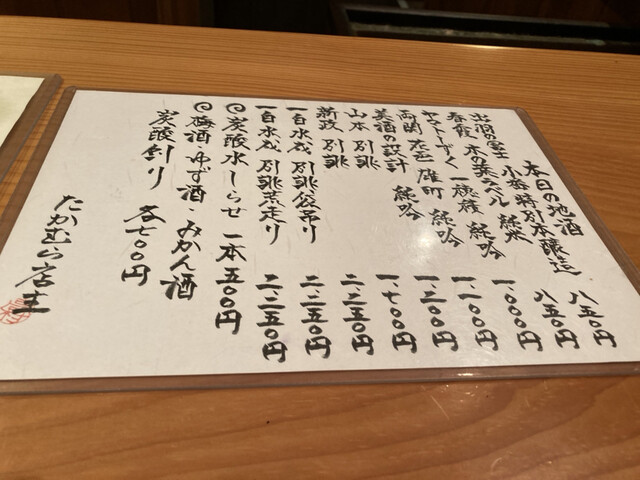 本日の地酒
特別本醸造 八五〇円
出羽の冨士 純米 八五〇円
春霞 木の葉ラベル 純吟 一、〇〇〇円
ヤマトしずく 一穂積 純吟 一、一〇〇円
両関 花邑 雄町 純吟 一、二〇〇円
美酒の設計 純吟 一、七〇〇円
山本 別誂
新政 別誂 二、二五〇円
一白水成 別誂袋吊り 二、二五〇円
一白水成 別誂荒走り 二、二五〇円
炭酸水しらせ 一本五〇〇円
梅酒・ゆず酒・みかん酒
炭酸割り 各七〇〇円
たかむら店主